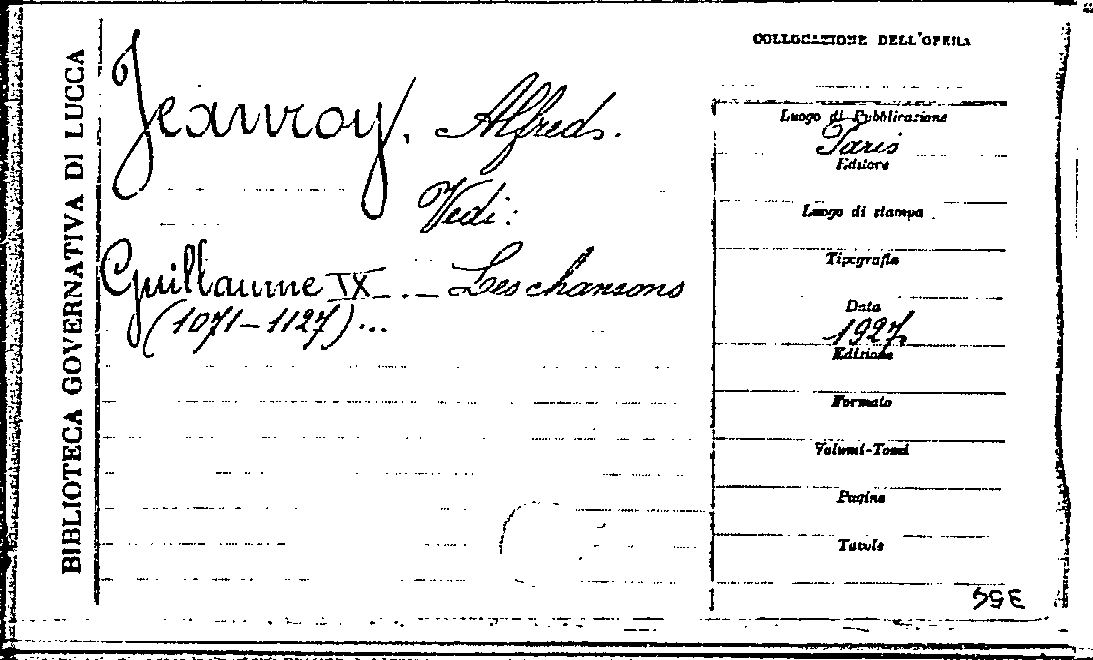 BIBLIOTECA GOVERNATIVA DI LUCCA
Jeanroy, Alfred.
Vedi:
Guillaume IX... Les chansons
(1071-1127)...
COLLOCAZIONE DELL'OPERA
Luogo di Pubblicazione
Paris
Editore
Luogo di stampa
Tipografia
Data
1927
Edizione
Formato
Volumi-Tomi
Pagine
Tavole
354